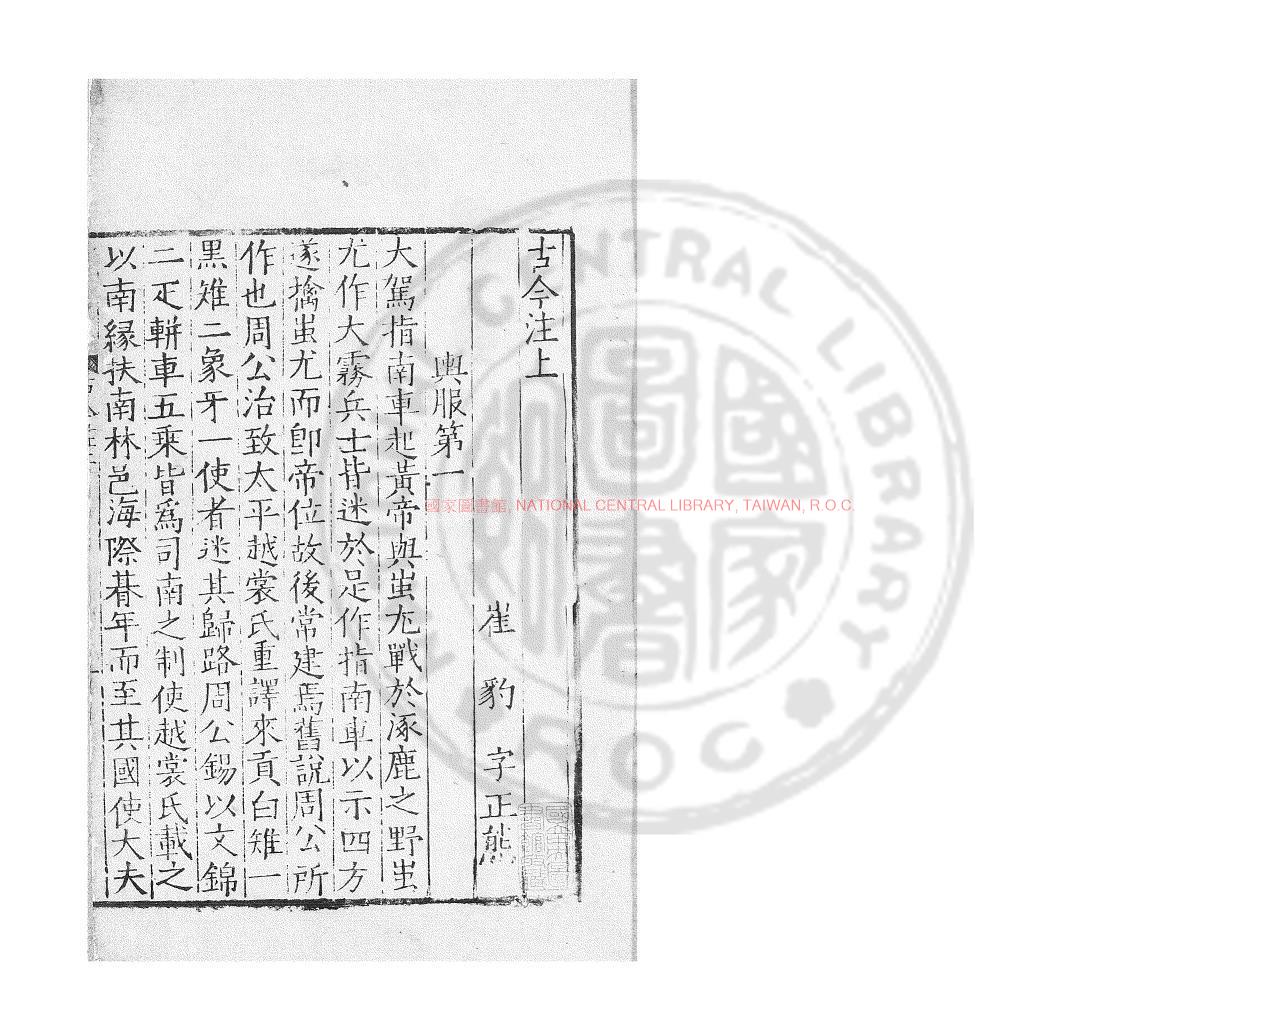 古今注上
崔豹字正熊
輿服第一
大駕指南車起黃帝與蚩尤戰於涿鹿之野蚩
尤作大霧兵士皆迷於是作指南車以示四方
遂擒蚩尤而即帝位故後常建焉舊說周公所
作也周公治致太平越裳氏重譯來貢白雉一
黑雉二象牙一使者迷其歸路周公錫以文錦
二疋軿車五乘皆爲司南之制使越裳氏載之
以南緣扶南林邑海際朞年而至其國使大夫
國家圖書館, NATIONAL CENTRAL LIBRARY, TAIWAN, R.O.C.
CENTRAL LIBRARY
R.O.C
國家圖書